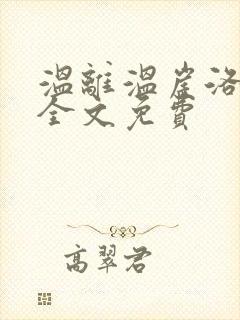 溫離溫崖洛
全文免費
高翠君